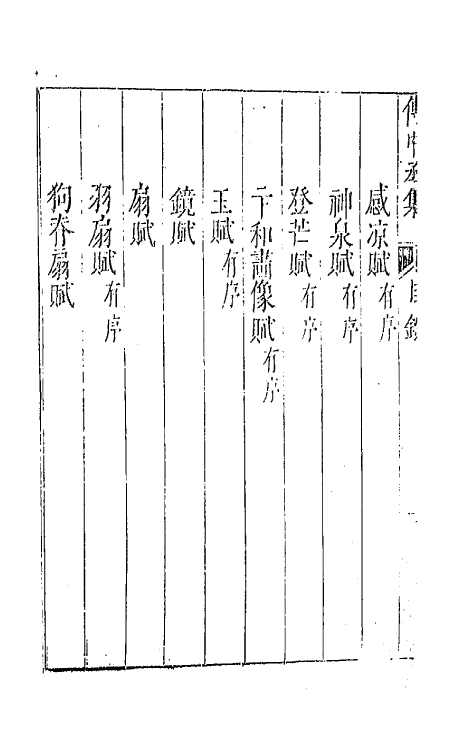 傅中丞集 目錄
感凉賦有序
神泉賦有序
登芒賦有序
卞和畫像賦有序
玉賦有序
鏡賦
扇賦
羽扇賦有序
狗脊扇賦